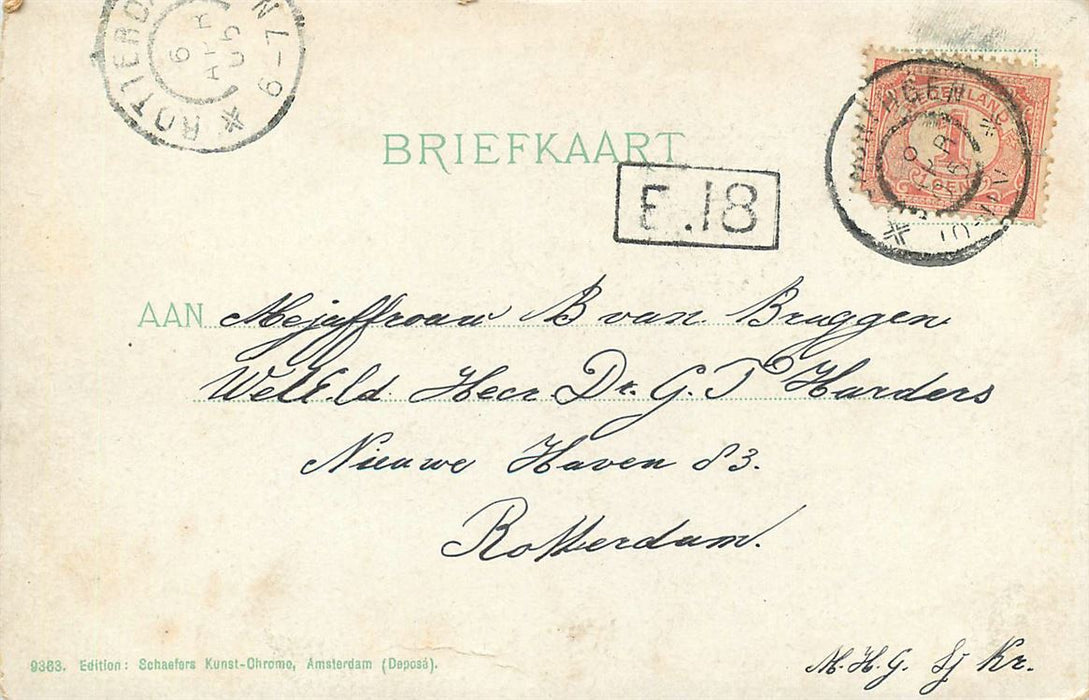 ROTTERDAM
N 7-9
6
APR
05
BRIEFKAART
GRONINGEN
NEDERLAND
1
CENT
APR
10-11V
F.18
AAN Mejuffrouw B van Bruggen
WelEld Heer Dr. G. T Harders
Nieuwe Haven 83.
Rotterdam.
9363. Edition: Schaefers Kunst-Chromo, Amsterdam (Deposé).
M.H.G. Sj Kr.